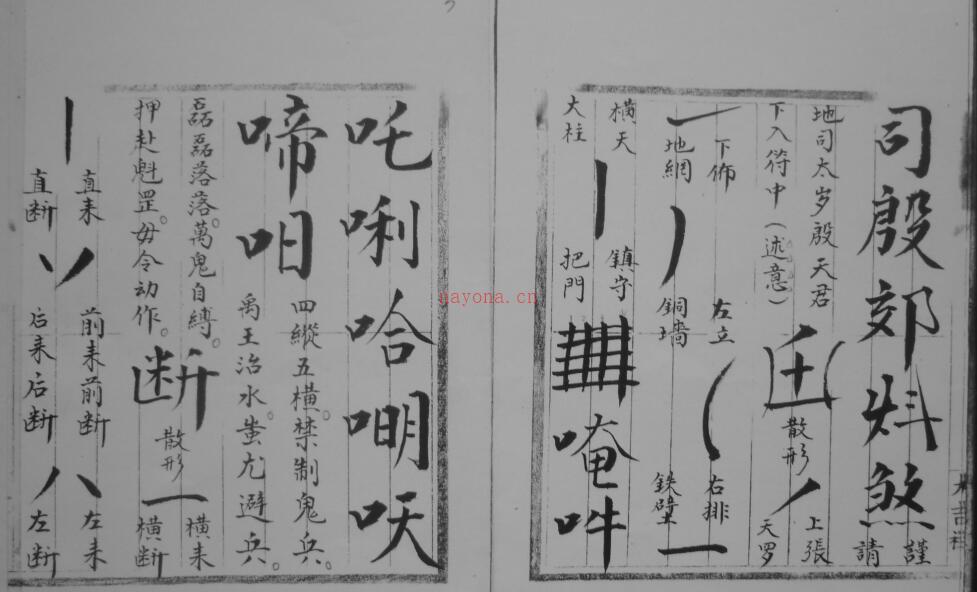 司殷郊㪷煞 謹請
地司太岁殷天君
下入符中（述意）
散形
上張天罗
下佈地網
左立銅墙
右排鉄壁
橫天大柱
鎮守把門
唵吽
吒唎哈嘲㕭
啼呬
四縱五橫。禁制鬼兵。
禹王治水。蚩尤避兵。
磊磊落落。萬鬼自縛。
押赴魁罡。毋令动作。
断
散形
橫来橫断
直来直断
前来前断
后来后断
左来左断
nayona.cn